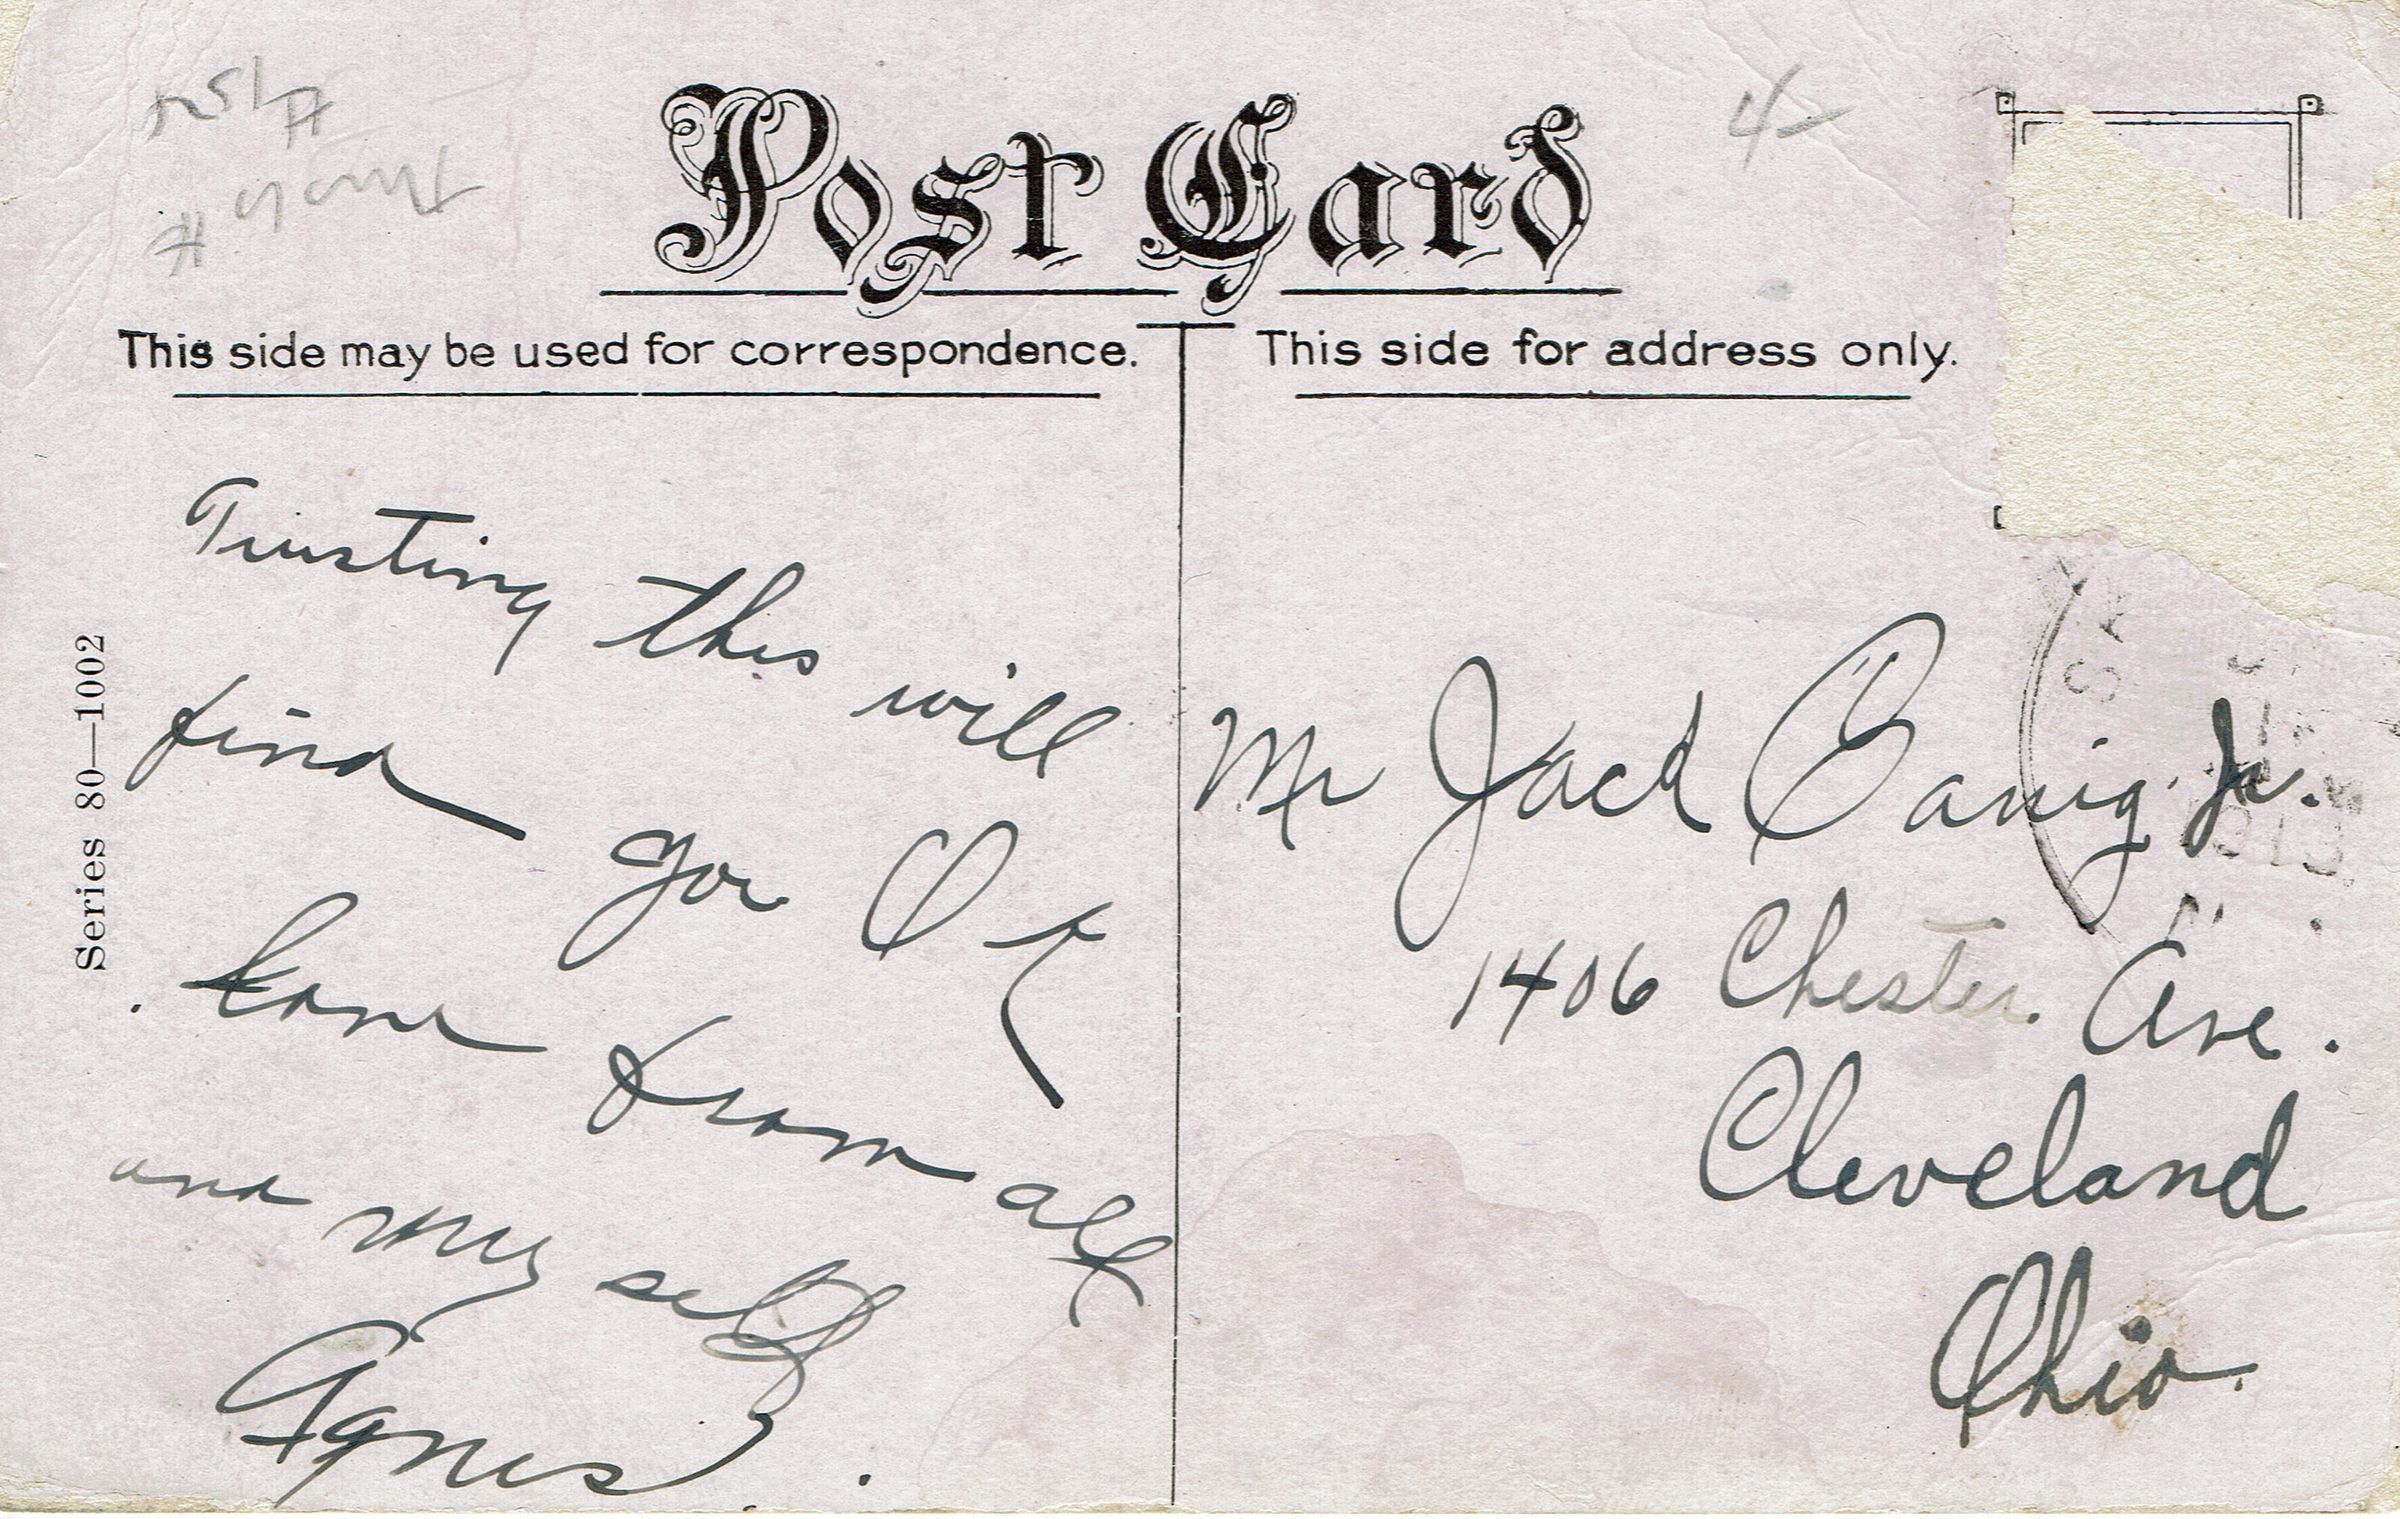 Post Card
4-
This side may be used for correspondence.
This side for address only.
Series 80—1002
Trusting this will
find you O K
love from all
and my self
Agnes.
Mr Jack Jr.
1406 Chester. Ave.
Cleveland
Ohio.